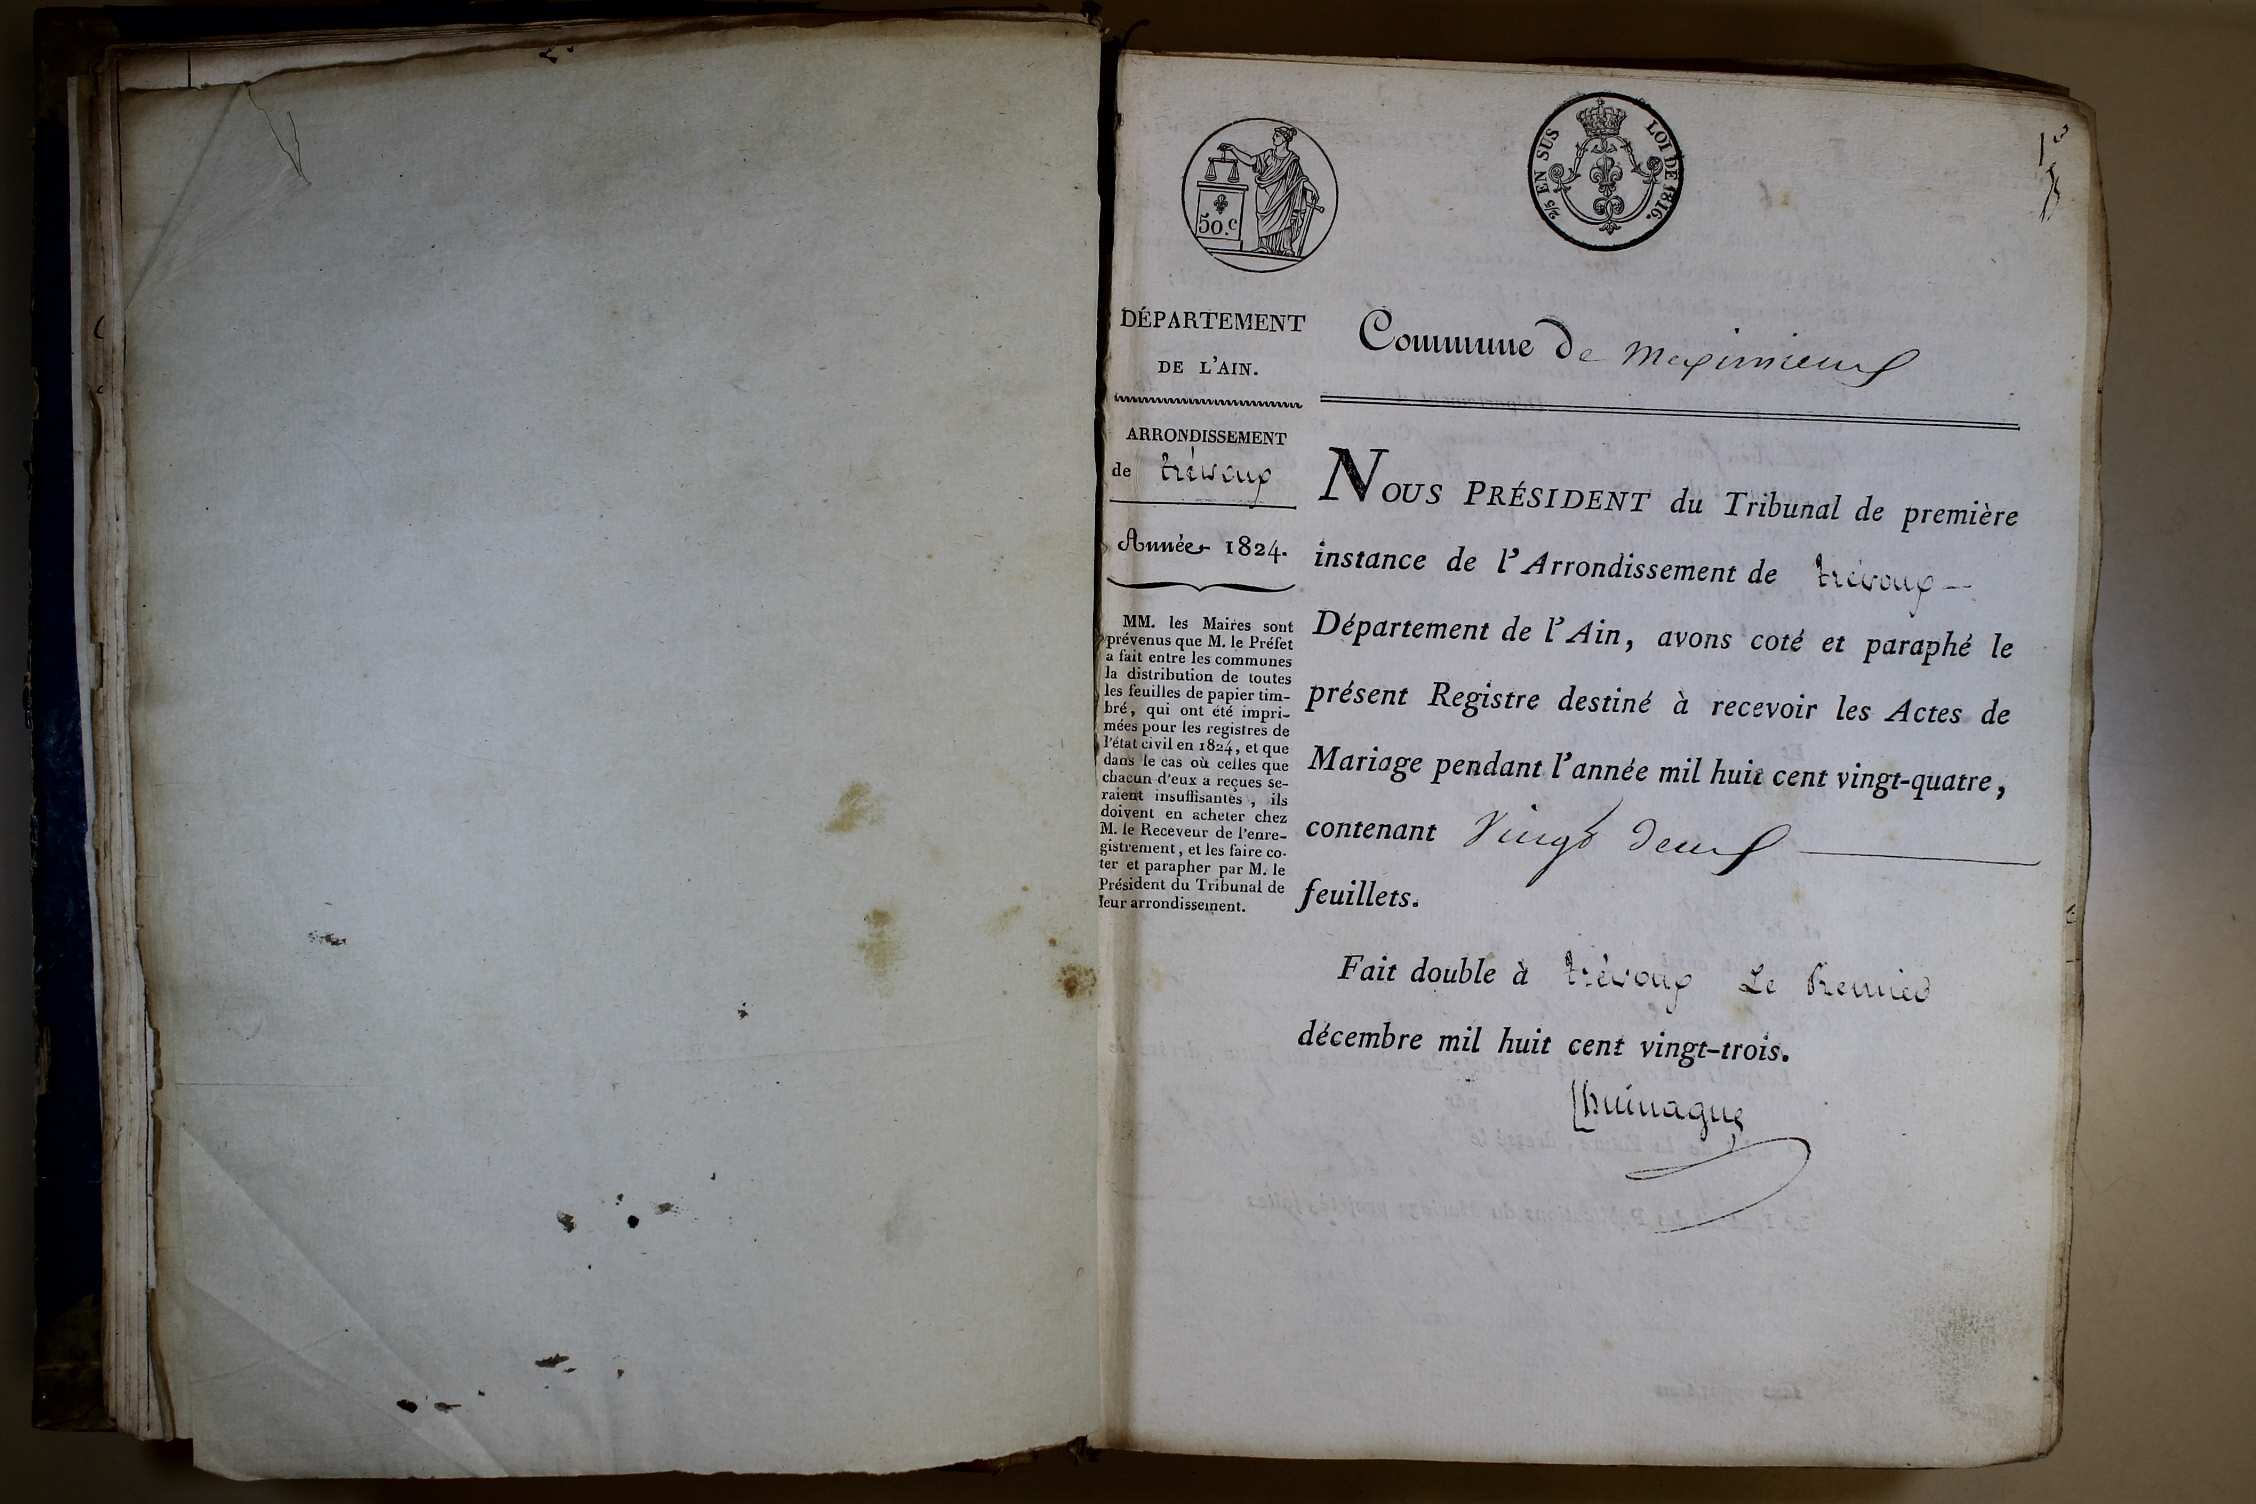 50.c
2/5 EN SUS LOI DE 1816.
DÉPARTEMENT
DE L'AIN.
ARRONDISSEMENT
de trévoux
Année 1824.
MM. les Maires sont
prévenus que M. le Préfet
a fait entre les communes
la distribution de toutes
les feuilles de papier tim-
bré, qui ont été impri-
mées pour les registres de
l'état civil en 1824, et que
dans le cas où celles que
chacun d'eux a reçues se-
raient insuffisantes, ils
doivent en acheter chez
M. le Receveur de l'enre-
gistrement, et les faire co-
ter et parapher par M. le
Président du Tribunal de
leur arrondissement.
Commune De meximieux
NOUS PRÉSIDENT du Tribunal de première
instance de l'Arrondissement de trévoux
Département de l'Ain, avons coté et paraphé le
présent Registre destiné à recevoir les Actes de
Mariage pendant l'année mil huit cent vingt-quatre,
contenant Vingt Deux
feuillets.
Fait double à trévoux Le Premier
décembre mil huit cent vingt-trois.